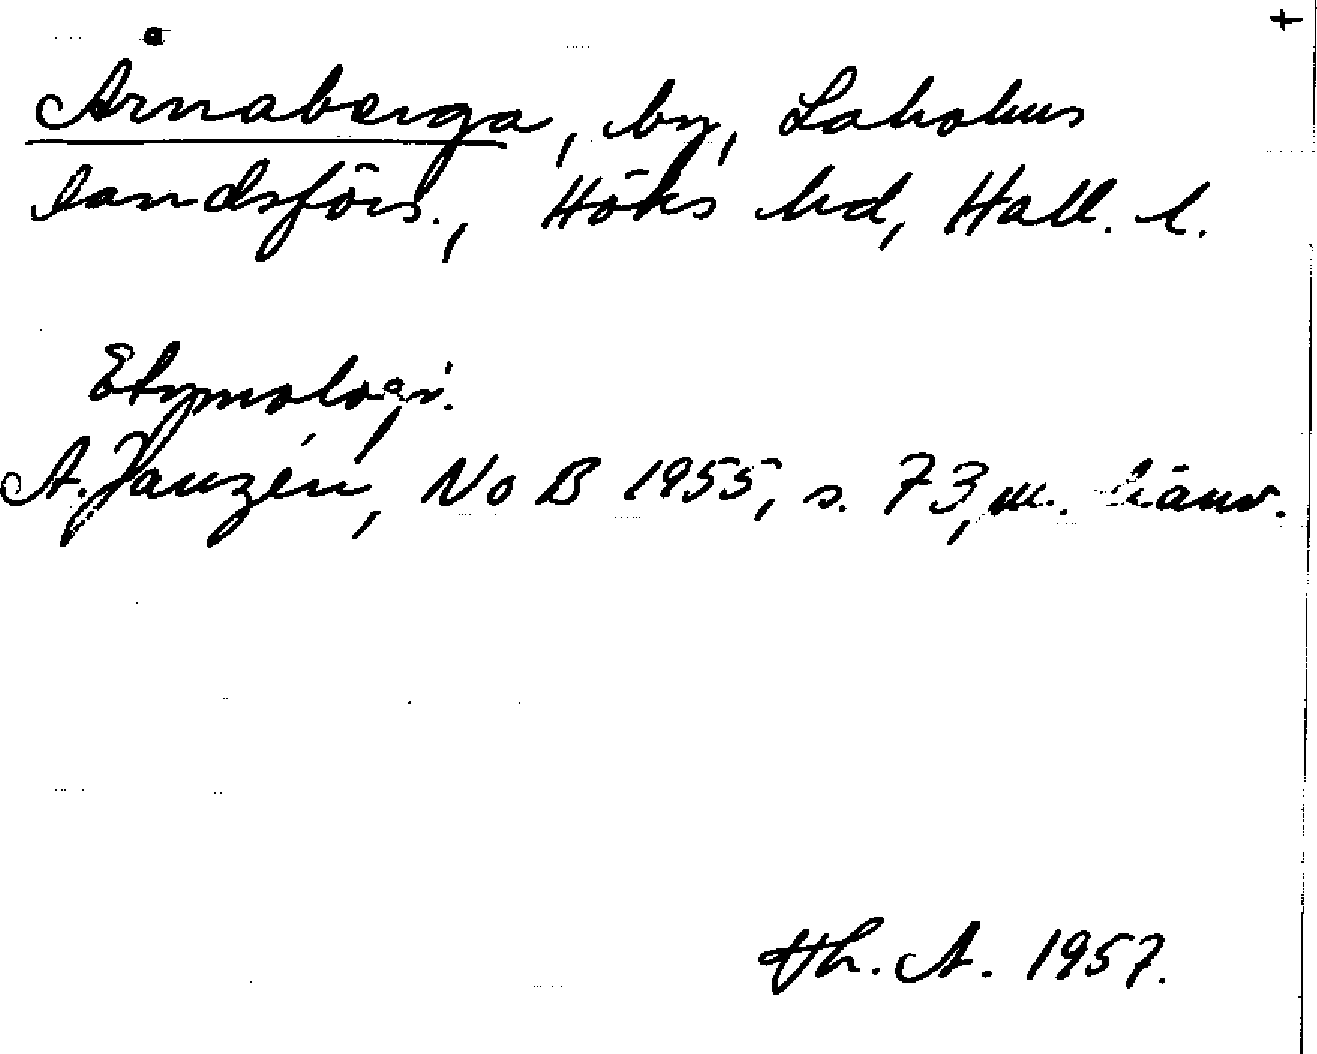 +
Årnaberga, by, Laholms
landsförs., Höks hd, Hall. l.
Etymologi.
A. Janzén, NoB 1955, s. 73, m. hänv.
Th. A. 1957.